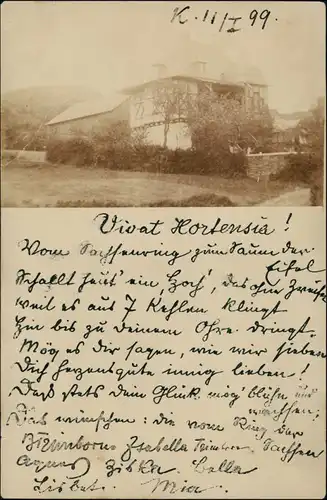 K. 11/I 99.
Vivat Hortensia!
Vom Sachsenring zum Saum der
Eifel
Schallt heut' ein „Hoch', das ohne Zweifel
weil es aus 7 Kehlen klingt
Hin bis zu deinem Ohre dringt.
Mög es dir sagen, wie wir sieben
Dich herzensgute innig lieben!
Dass stets dein Glück mög blühn und
wachsen,
Das wünschen: die vom Ring der
Sachsen
Isabella
Agnes Ziska. Bella
Lisbet. Mia.